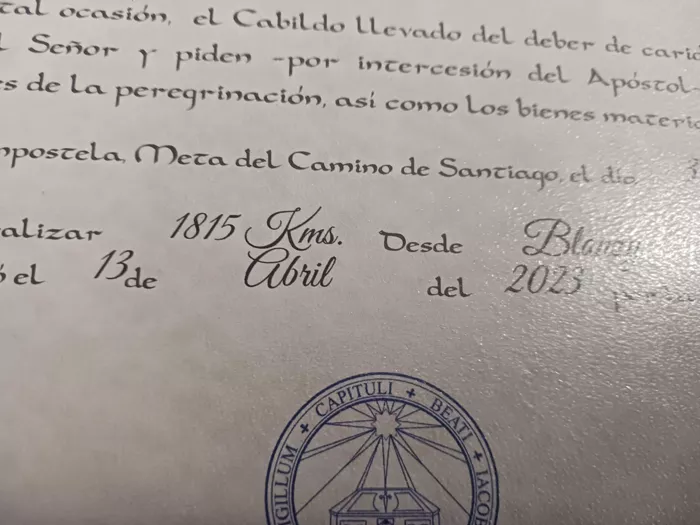 tal ocasión, el Cabildo llevado del deber de
Señor y piden -por intercesión del Apóstol-
de la peregrinación, así como los bienes
Meta del Camino de Santiago, el día
1815 Kms. Desde
el 13 de Abril del 2023
SIGILLUM + CAPITULI + BEATI + IACOB